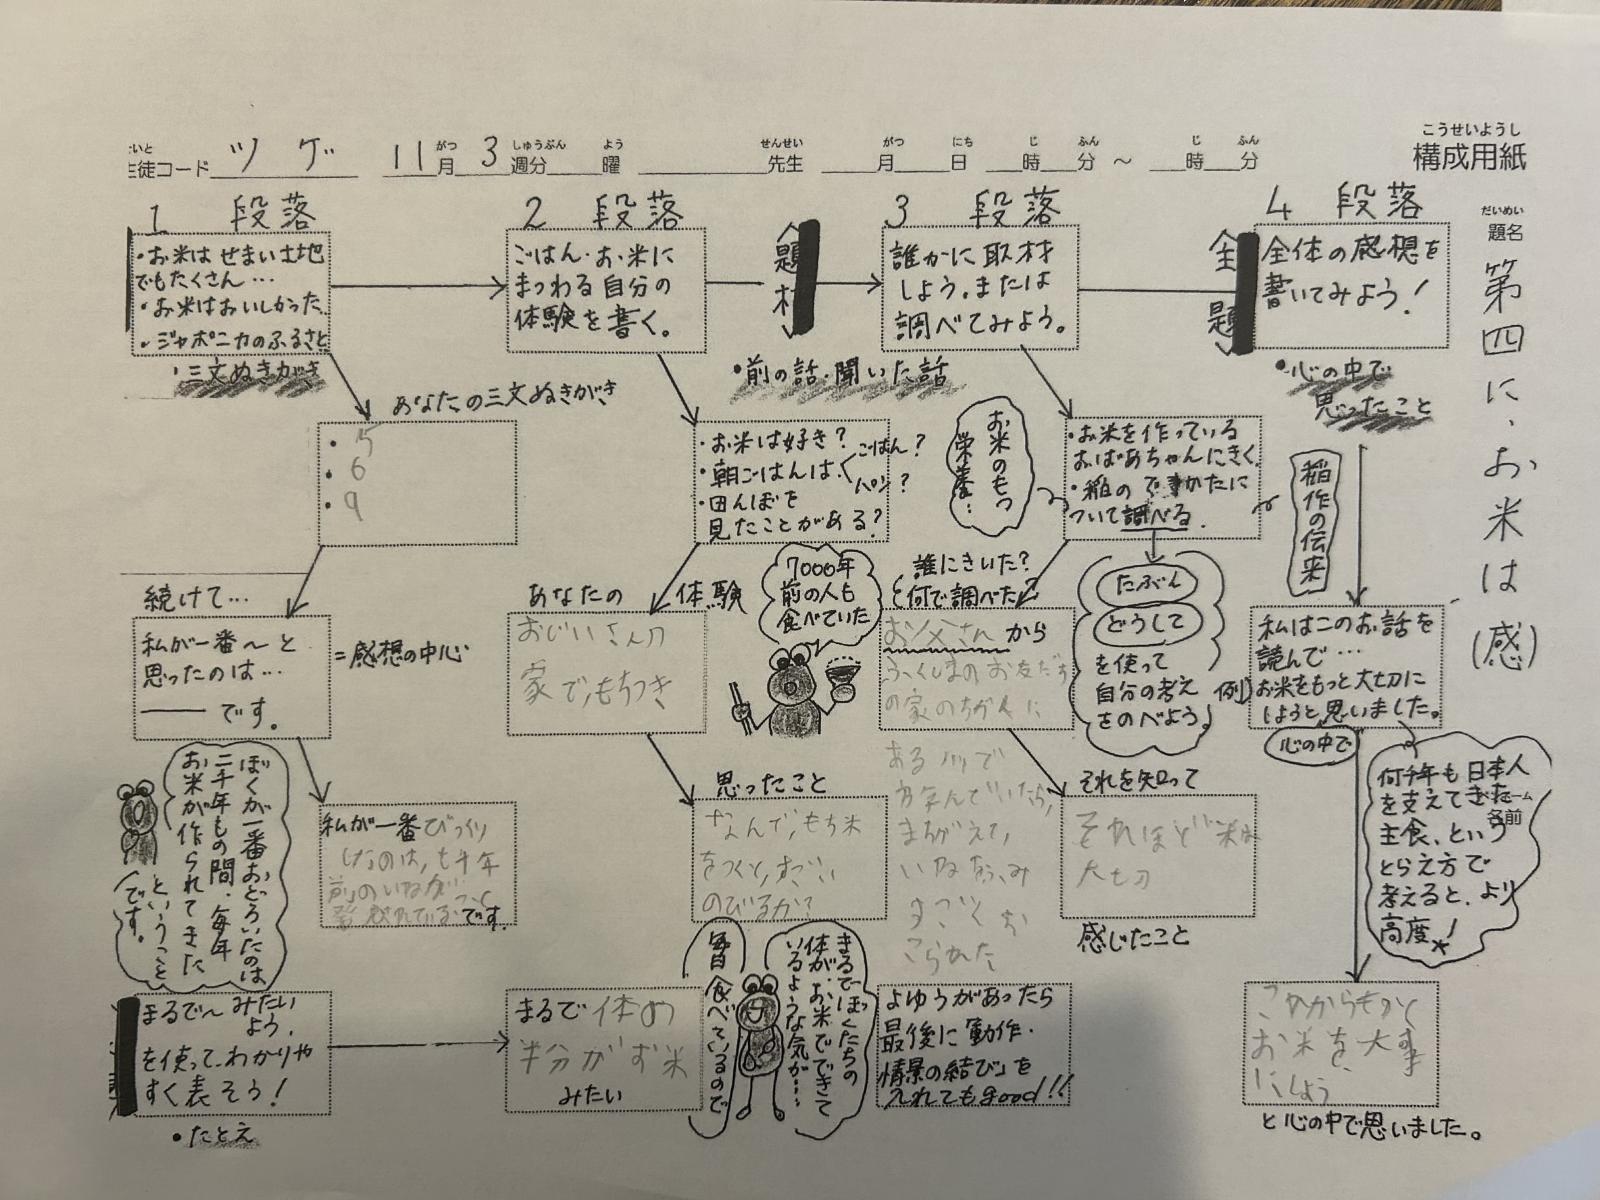 こうせいようし
構成用紙
生徒コード ツゲ 11月 3週分 曜 先生 月 日 時 分 〜 時 分
だいめい
題名
第四に、お米は(感)
1 段落
・お米はせまい土地
でもたくさん…
・お米はおいしかった
・ジャポニカのふるさと
・三文ぬきがき
あなたの三文ぬきがき
・5
・6
・9
続けて…
私が一番〜と
思ったのは…
―― です。
=感想の中心
私が一番びっくり
したのは、七千年
前のいねが
です。
ぼくが一番おどろいたのは
二千年もの間、毎年
お米が作られてきた
ということ
です。
まるで〜みたい
よう、
を使って、わかりや
すく表そう!
・たとえ
2 段落
ごはん・お米に
まつわる自分の
体験を書く。
題材
・前の話・聞いた話
・お米は好き?
・朝ごはんは ごはん?
パン?
・田んぼを
見たことがある?
あなたの体験
おじいさんの
家でもちつき
7000年
前の人も
食べていた
思ったこと
なんでもち米
をつくと、すごい
のびるか?
まるで体の
半分がお米
みたい
毎日食べているので
まるでぼくたちの
体が、お米でできて
いるような気が…
3 段落
誰かに取材
しよう。または
調べてみよう。
お米のもつ
栄養…
・お米を作っている
おばあちゃんにきく
・稲のでき方かたに
ついて調べる。
誰にきいた?
何で調べた?
お父さんから
ふくしまのお友だち
の家のちかくに
ある川で
まちがえて、
いねをふみ
すごくお
こられた
たぶん
どうして
を使って
自分の考え
をのべよう。
それを知って
それほど米は
大切
感じたこと
よゆうがあったら
最後に動作・
情景の結び」を
入れてもgood!!
4 段落
全体の感想を
書いてみよう!
・心の中で
思ったこと
稲作の伝来
例)
私はこのお話を
読んで…
お米をもっと大切に
しようと思いました。
心の中で
何千年も日本人
を支えてきた
主食、という
とらえ方で
考えると、より
高度!
名前
これからも
お米を大事
にしよう
と心の中で思いました。